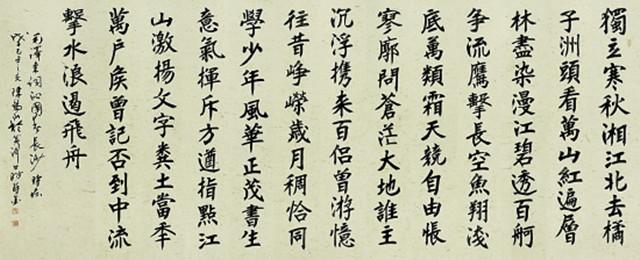 獨立寒秋湘江北去橘
子洲頭看萬山紅遍層
林盡染漫江碧透百舸
争流鷹擊長空魚翔淺
底萬類霜天競自由悵
寥廓問蒼茫大地誰主
沉浮携来百侣曾游憶
往昔崢嶸歲月稠恰同
學少年風華正茂書生
意氣揮斥方遒指點江
山激揚文字糞土當秊
萬户侯曾記否到中流
擊水浪遏飛舟
毛澤東詞沁園春長沙